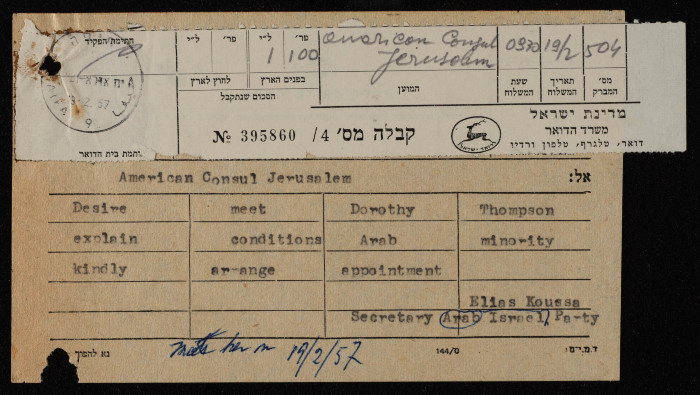 חתימת/הפקיד
ל"י פר' ל"י פר'
1 100
לחוץ לארץ בפנים הארץ
הסכום שנתקבל
American Consul
Jerusalem
המוען
0930 19/2 504
שעת המשלוח תאריך המשלוח מס' המברק
HAIFA
9
מדינת ישראל
משרד הדואר
דואר, טלגרף, טלפון ורדיו
קבלה מס' 4/ 395860 №
דואר ישראל
חותמת בית הדואר
אל: American Consul Jerusalem
Desire meet Dorothy Thompson
explain conditions Arab minority
kindly arrange appointment
Elias Koussa
Secretary Arab Israel Party
her on 19/2/57
נא להפוך 144/ס ד.מ.י-ם